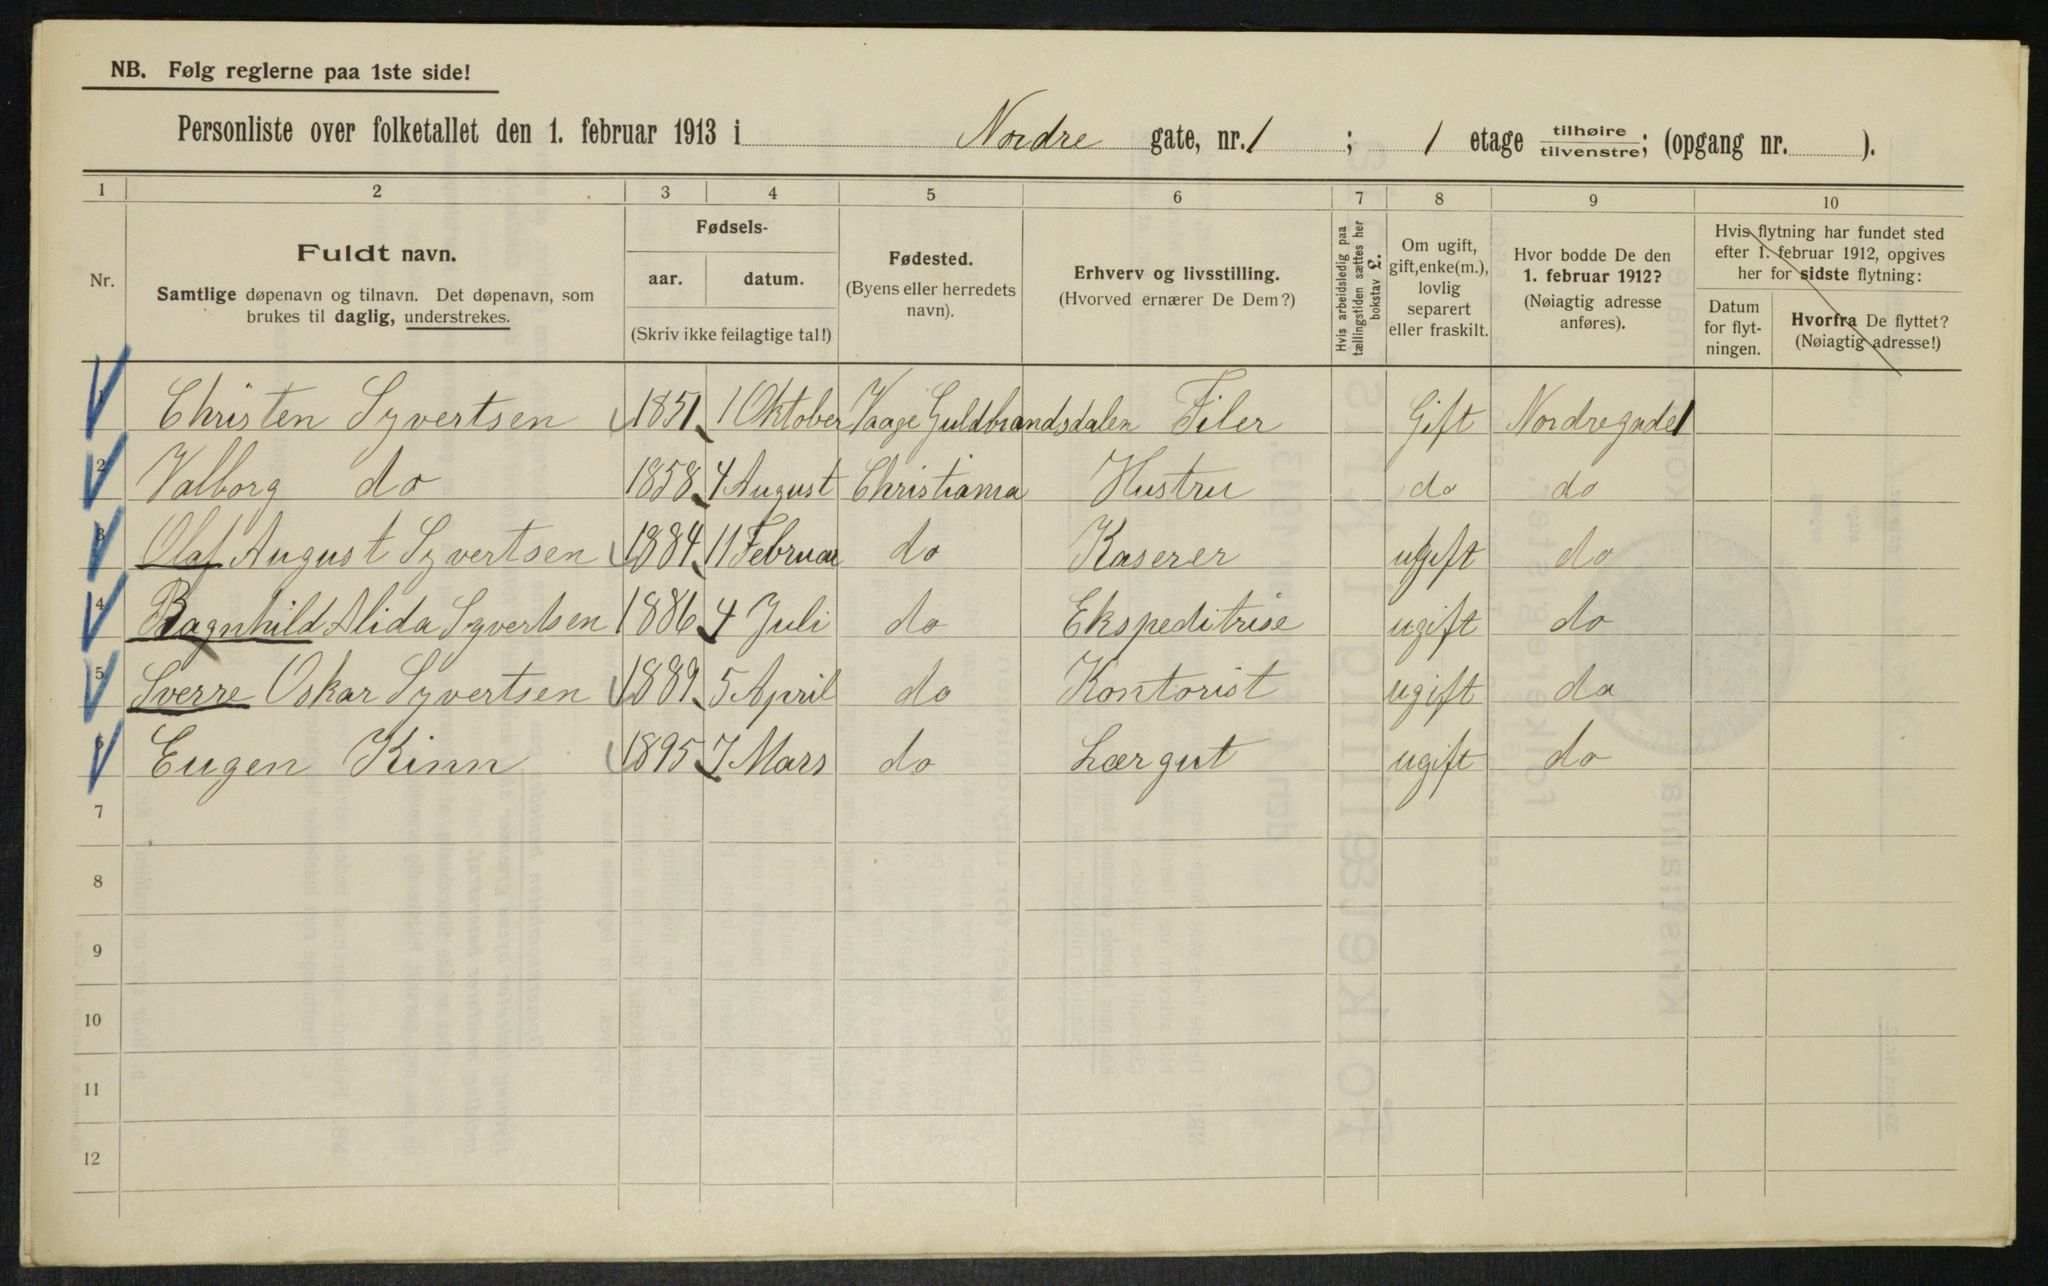 NB. Følg reglerne paa 1ste side!
Personliste over folketallet den 1. februar 1913 i Nordre gate, nr. 1 ; 1 etage tilhøire/tilvenstre; (opgang nr. ).
1 2 3 4 5 6 7 8 9 10
Nr.
Fuldt navn.
Samtlige døpenavn og tilnavn. Det døpenavn, som
brukes til daglig, understrekes.
Fødsels-
aar. datum.
(Skriv ikke feilagtige tal!)
Fødested.
(Byens eller herredets
navn).
Erhverv og livsstilling.
(Hvorved ernærer De Dem?)
Hvis arbeidsledig paa
tællingstiden sættes her
bokstav L.
Om ugift,
gift, enke(m.),
lovlig
separert
eller fraskilt.
Hvor bodde De den
1. februar 1912?
(Nøiagtig adresse
anføres).
Hvis flytning har fundet sted
efter 1. februar 1912, opgives
her for sidste flytning:
Datum
for flyt-
ningen.
Hvorfra De flyttet?
(Nøiagtig adresse!)
1 Christen Syvertsen 1851 1 Oktober Vaage Guldbrandsdalen Filer Gift Nordregade 1
2 Valborg do 1858 4 August Christiania Hustru do do
3 Olaf August Syvertsen 1884 11 Februar do Kaserer ugift do
4 Ragnhild Alida Syvertsen 1886 4 Juli do Ekspeditrise ugift do
5 Sverre Oskar Syvertsen 1889 5 April do Kontorist ugift do
6 Eugen Kinn 1895 7 Mars do Lærgut ugift do
7
8
9
10
11
12